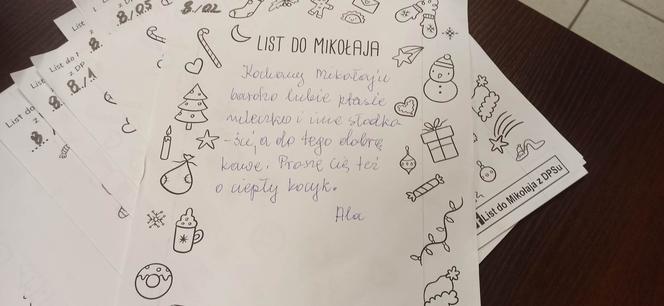 8./05
8./02
List do
List do M
z DP
8./1
List do
8.
LIST DO MIKOŁAJA
Kochany Mikołaju
bardzo lubię ptasie
mleczko i inne słodko-
ści, a do tego dobrą
kawę. Proszę Cię też
o ciepły kocyk.
Ala
List do Mikołaja z DPSu